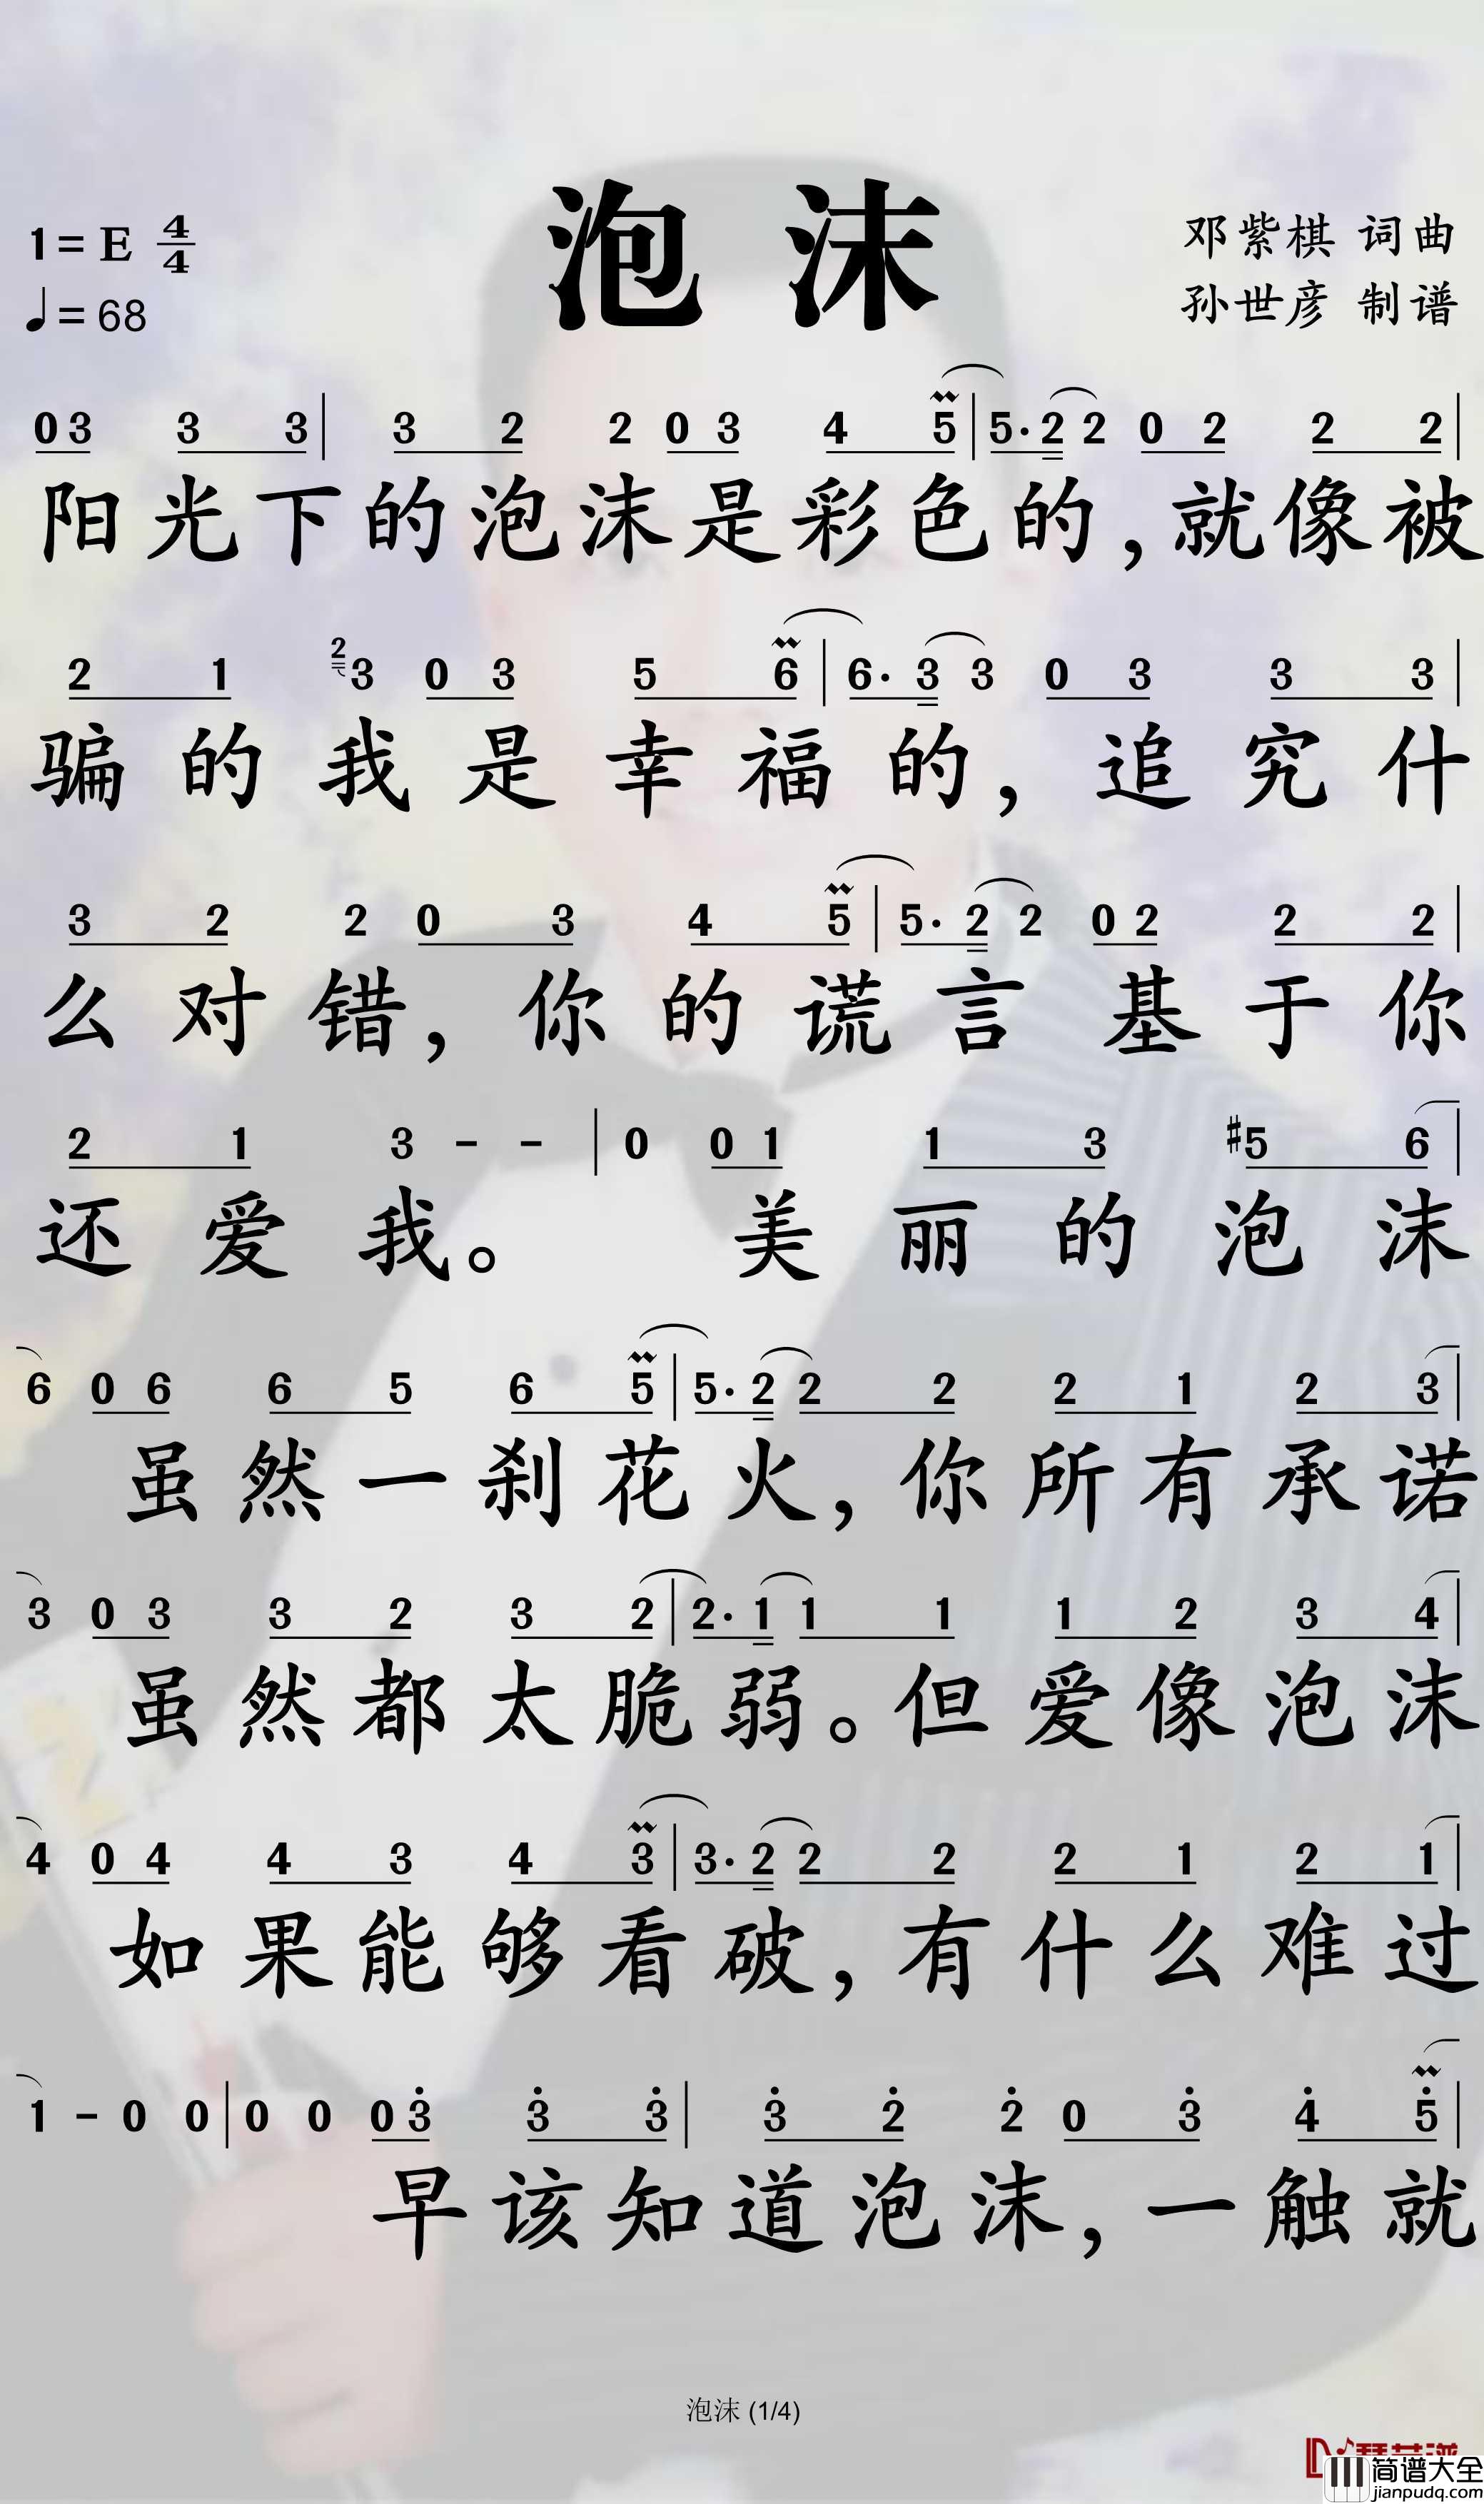 泡沫
1=E 4/4
邓紫棋 词曲
♩=68
孙世彦 制谱
0 3 3 3 | 3 2 2 0 3 4 5 | 5· 2 2 0 2 2 2 |
阳光下的泡沫是彩色的,就像被
2 1 2 3 0 3 5 6 | 6· 3 3 0 3 3 3 |
骗的我是幸福的,追究什
3 2 2 0 3 4 5 | 5· 2 2 0 2 2 2 |
么对错,你的谎言基于你
2 1 3 - - | 0 0 1 1 3 #5 6 |
还爱我。美丽的泡沫
6 0 6 6 5 6 5 | 5· 2 2 2 2 1 2 3 |
虽然一刹花火,你所有承诺
3 0 3 3 2 3 2 | 2· 1 1 1 1 2 3 4 |
虽然都太脆弱。但爱像泡沫
4 0 4 4 3 4 3 | 3· 2 2 2 2 1 2 1 |
如果能够看破,有什么难过
1 - 0 0 | 0 0 0 3 3 3 | 3 2 2 0 3 4 5 |
早该知道泡沫,一触就
泡沫 (1/4)
简谱大全
jianpudq.com